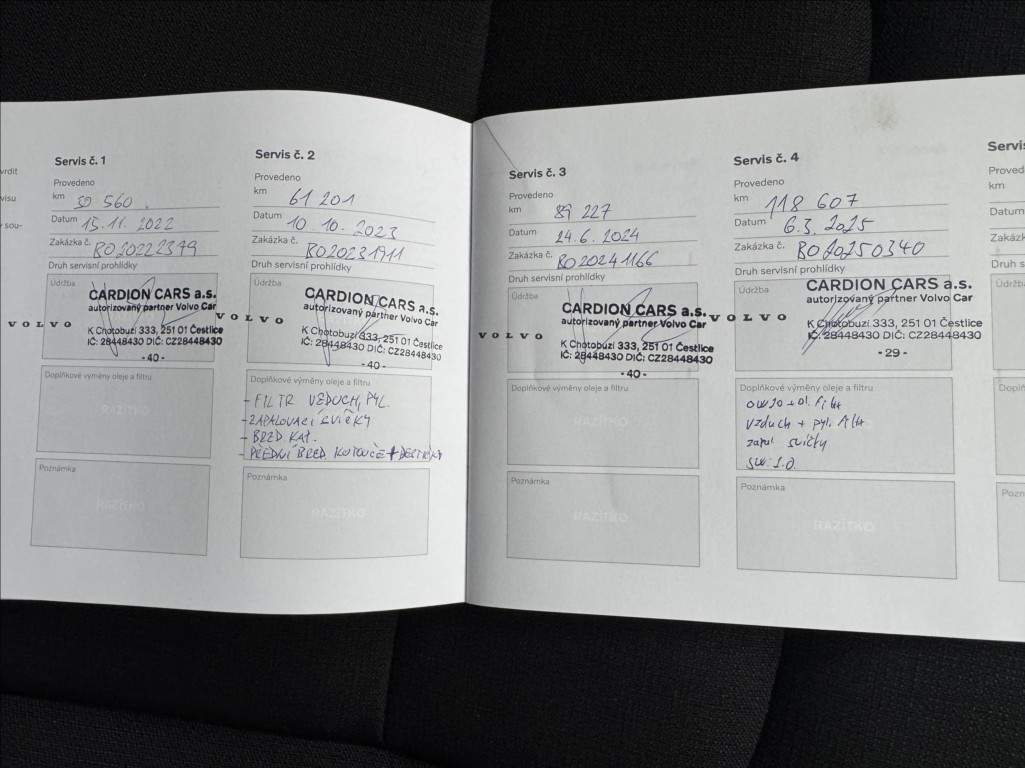 vrdit
visu
sou-
Servis č. 1
Provedeno
km 30 560
Datum 15.11.2022
Zakázka č. BO20222399
Druh servisní prohlídky
Údržba
CARDION CARS a.s.
autorizovaný partner Volvo Car
VOLVO
K Chotobuzi 333, 251 01 Čestlice
IČ: 28448430 DIČ: CZ28448430
- 40 -
Doplňkové výměny oleje a filtru
RAZÍTKO
Poznámka
RAZÍTKO
Servis č. 2
Provedeno
km 61 201
Datum 10 10. 2023
Zakázka č. BO20231911
Druh servisní prohlídky
Údržba
CARDION CARS a.s.
autorizovaný partner Volvo Car
VOLVO
K Chotobuzi 333, 251 01 Čestlice
IČ: 28448430 DIČ: CZ28448430
- 40 -
Doplňkové výměny oleje a filtru
- FILTR VZDUCH, PYL.
- ZAPALOVACÍ SVÍČKY
- BRZD KAP.
- PŘEDNÍ BRZD. KOTOUČE + DESTIČKY
Poznámka
RAZÍTKO
Servis č. 3
Provedeno
km 89 227
Datum 24.6.2024
Zakázka č. BO20241166
Druh servisní prohlídky
Údržba
CARDION CARS a.s.
autorizovaný partner Volvo Car
VOLVO
K Chotobuzi 333, 251 01 Čestlice
IČ: 28448430 DIČ: CZ28448430
- 40 -
Doplňkové výměny oleje a filtru
RAZÍTKO
Poznámka
RAZÍTKO
Servis č. 4
Provedeno
km 118 607
Datum 6.3.2025
Zakázka č. BO20250340
Druh servisní prohlídky
Údržba
CARDION CARS a.s.
autorizovaný partner Volvo Car
VOLVO
K Chotobuzi 333, 251 01 Čestlice
IČ: 28448430 DIČ: CZ28448430
- 29 -
Doplňkové výměny oleje a filtru
0W20 + ol. filtr
vzduch + pyl. filtr
zapal svíčky
SW: 1.0
Poznámka
RAZÍTKO
Servi
Proved
km
Datum
Zakázk
Druh s
Údržb
Doplň
Pozn